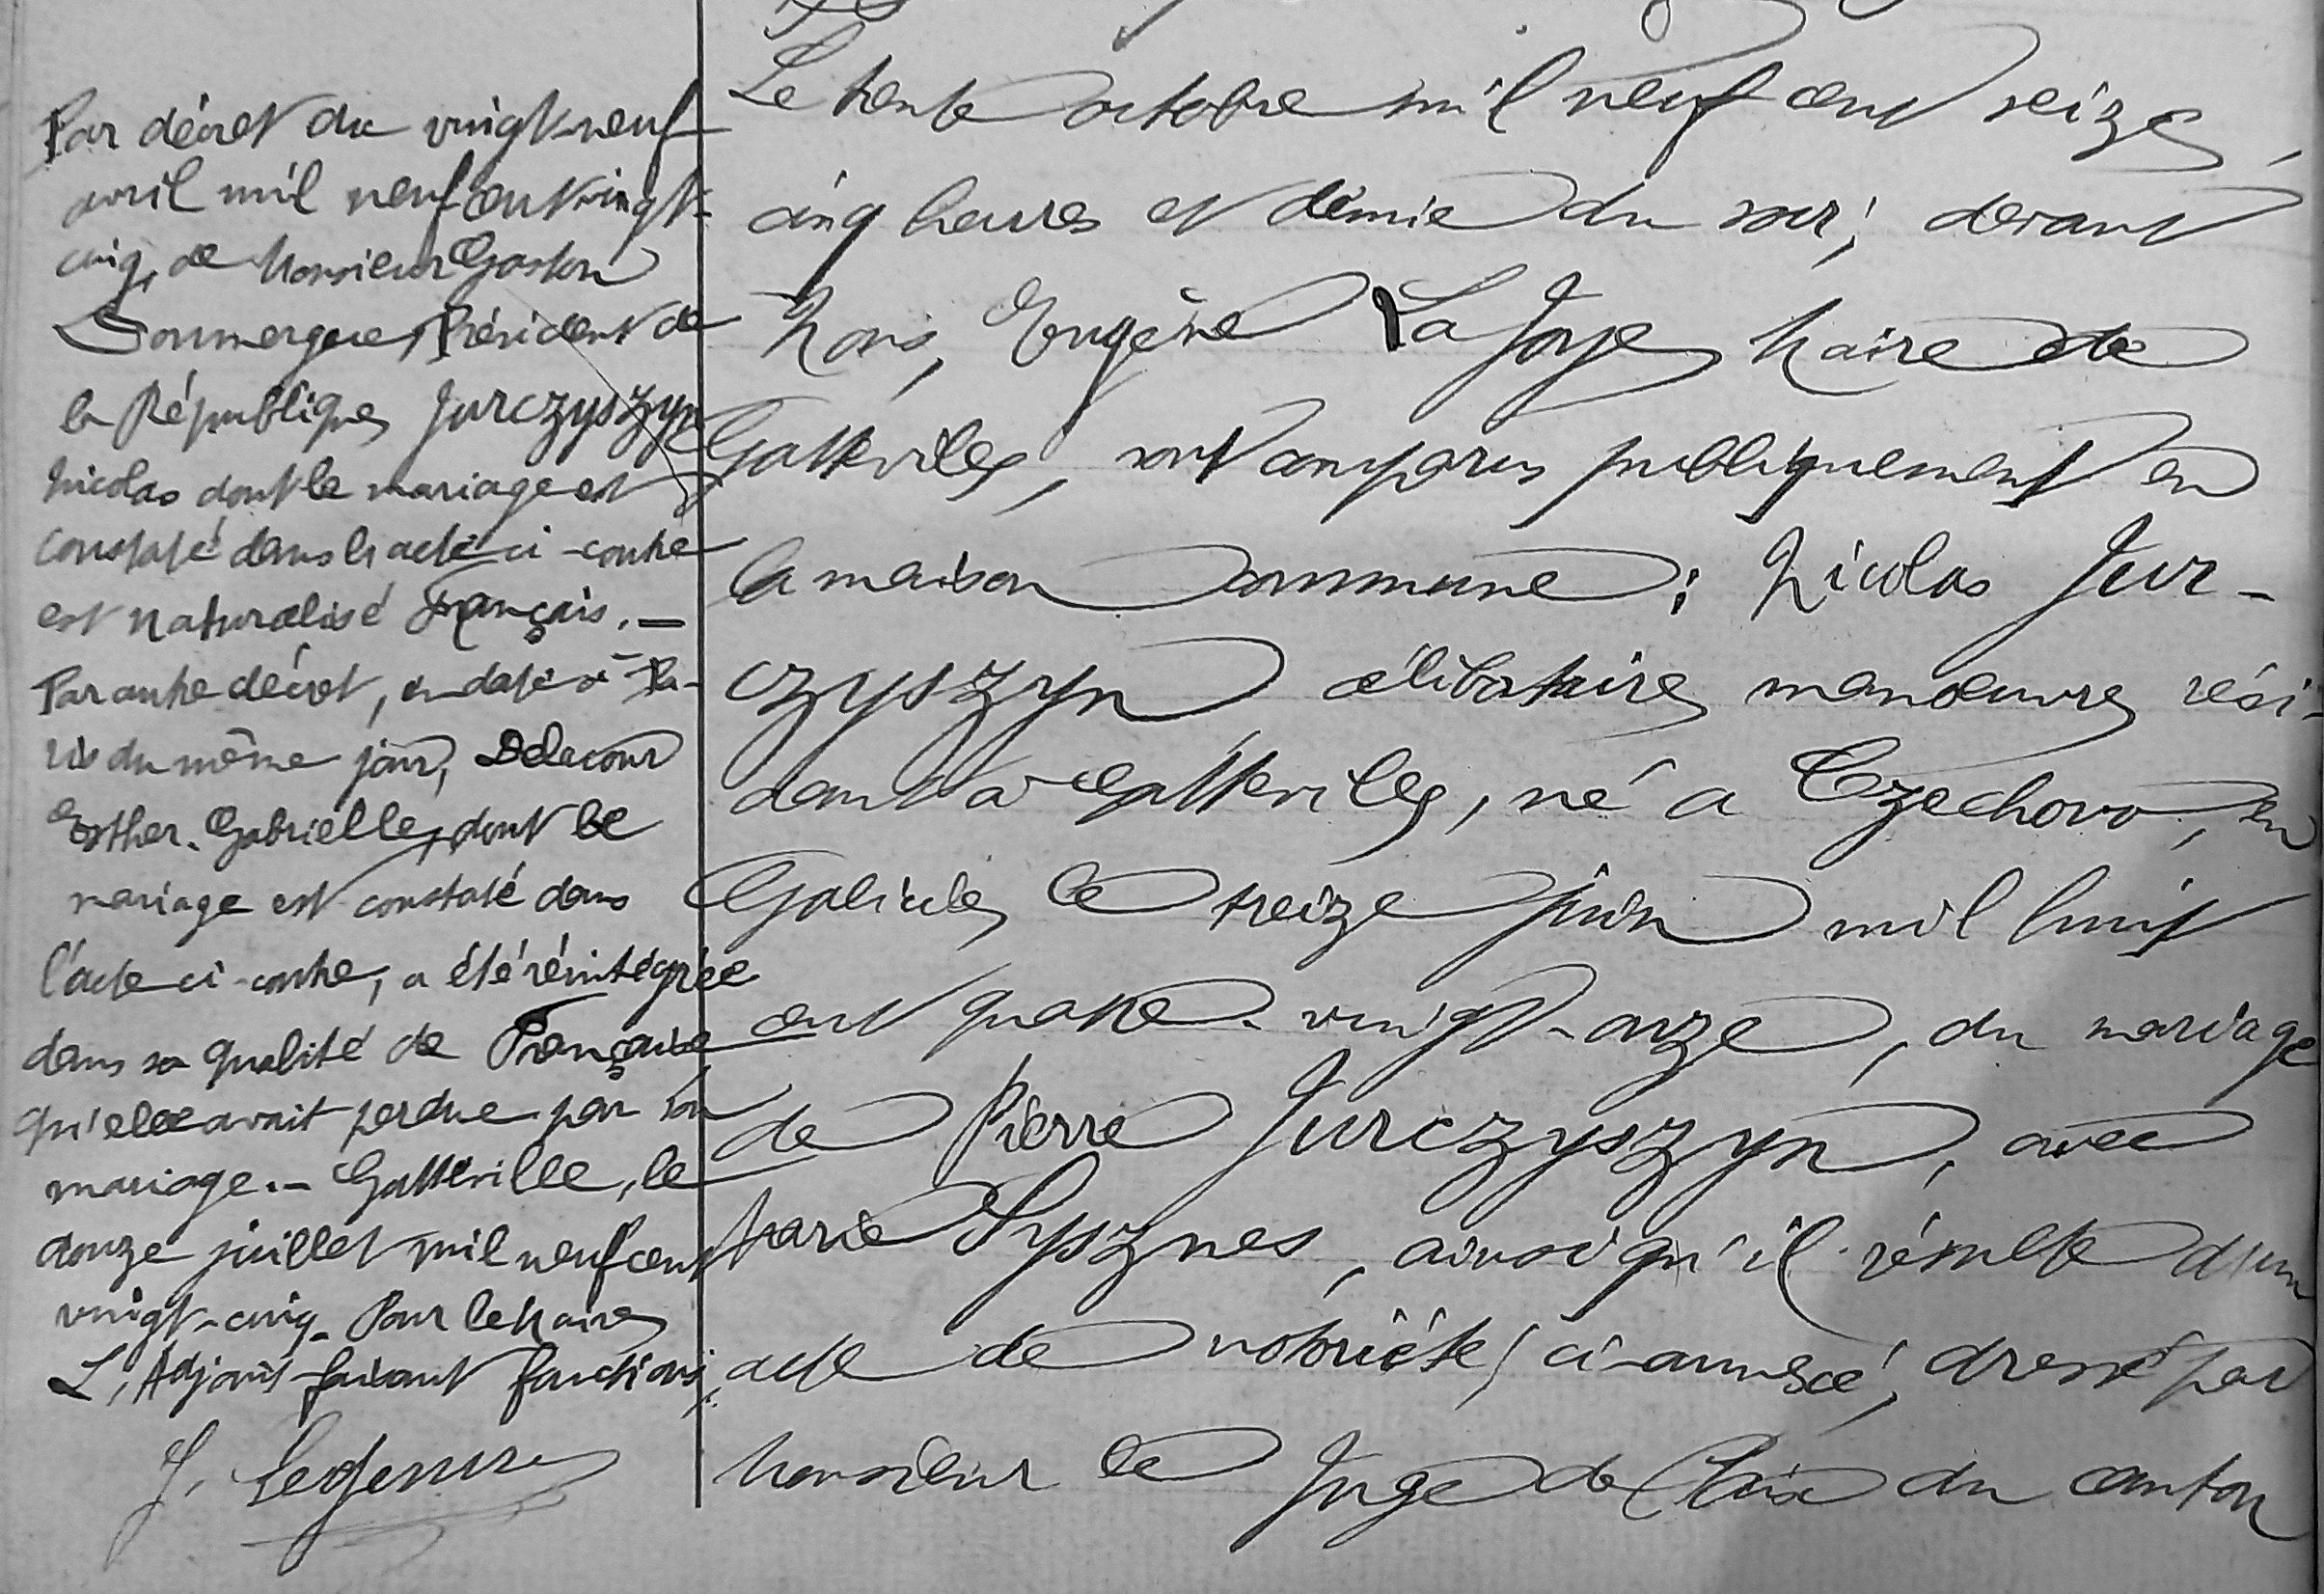 Par décret du vingt-neuf
avril mil neuf cent vingt-
cinq, de Monsieur Gaston
Doumergue, Président de
la République, Jurczyszyn
Nicolas dont le mariage est
constaté dans l'acte ci-contre
est naturalisé Français. —
Par autre décret, en date à Pa-
ris du même jour, Delacour
Esther. Gabrielle, dont le
mariage est constaté dans
l'acte ci-contre, a été réintégrée
dans sa qualité de Française
qu'elle avait perdue par son
mariage. — Gatteville, le
douze juillet mil neuf cent
vingt-cinq. Pour le Maire,
L'Adjoint faisant fonctions,
J.
Le trente octobre mil neuf cent seize,
cinq heures et démie du soir, devant
Nous, Eugène La Joye, Maire de
Gatteville, sont comparus publiquement en
la maison commune : Nicolas Jur-
czyszyn célibataire, manœuvre, rési-
dant à Gatteville, né à Czechovo, en
Galicie, le treize juin mil huit
cent quatre-vingt-onze, du mariage
de Pierre Jurczyszyn, avec
Marie Sysznes, ainsi qu'il résulte d'un
acte de notoriété, ci-annexé, dressé par
Monsieur le Juge de Paix du canton